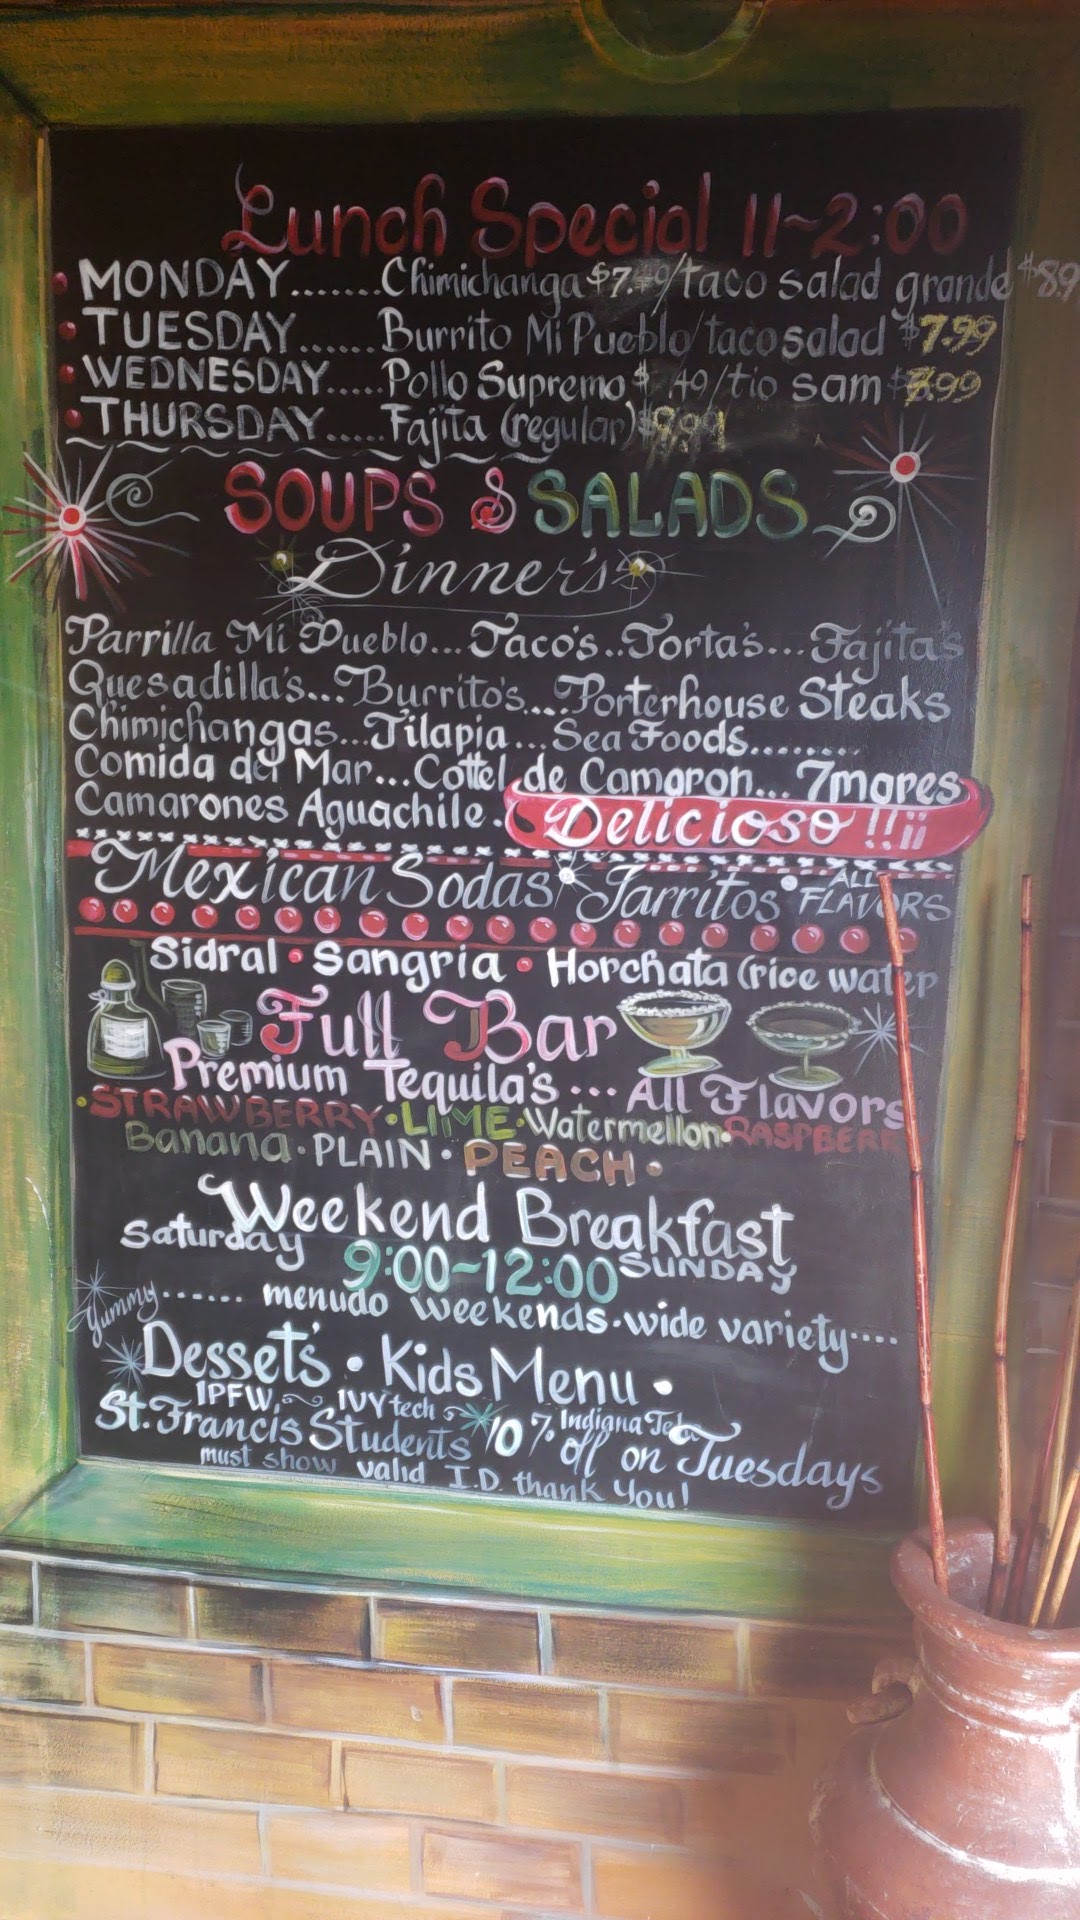 Lunch Special 11~2:00
MONDAY.......Chimichanga $7.49/taco salad grande
TUESDAY.......Burrito Mi Pueblo/taco salad $7.99
WEDNESDAY.....Pollo Supremo /tio sam
THURSDAY.....Fajita (regular) $9.99
SOUPS & SALADS
Dinner's
Parrilla Mi Pueblo...Taco's..Torta's...Fajita's
Quesadilla's...Burrito's....Porterhouse Steaks
Chimichangas...Tilapia...Sea Foods........
Comida del Mar...Cottel de Camaron... 7mares
Camarones Aguachile. Delicioso !!¡¡
Mexican Sodas Jarritos ALL FLAVORS
Sidral • Sangria • Horchata (rice water
Full Bar
Premium Tequila's ... All Flavors
•STRAWBERRY•LIME•Watermellon•RASPBERRY
Banana•PLAIN•PEACH•
Weekend Breakfast
Saturday 9:00~12:00 SUNDAY
Yummy...... menudo weekends•wide variety....
Desset's • Kids Menu •
IPFW, ~ IVY tech Indiana
St. Francis Students 10% off on Tuesdays
must show valid I.D. thank You!